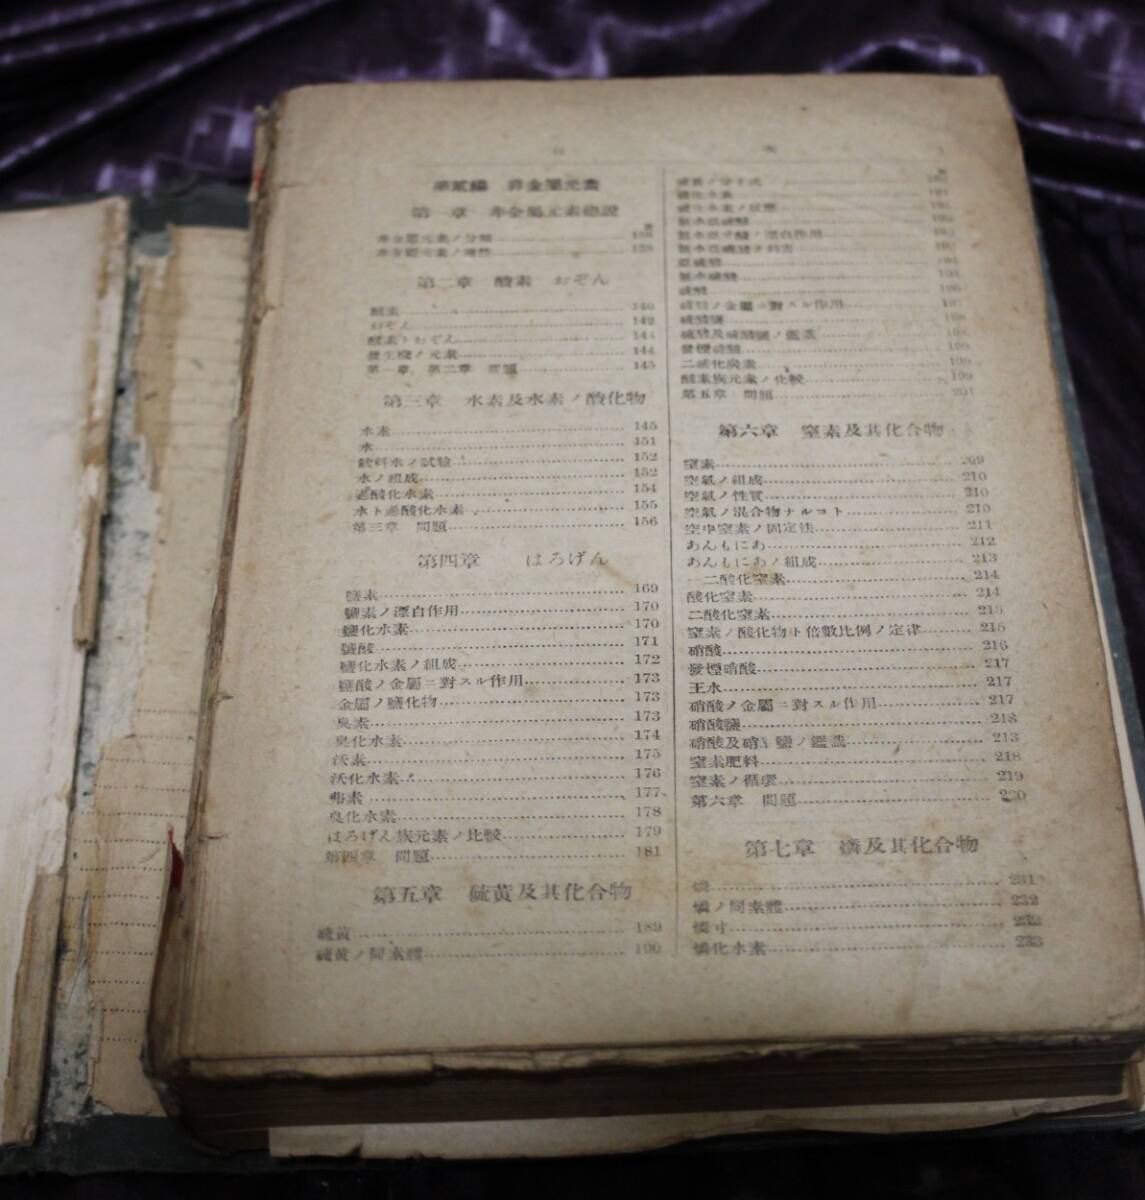 目 次
第貳編 非金屬元素
第一章 非金屬元素總說
非金屬元素ノ分類 138
非金屬元素ノ通性 138
第二章 酸素 おぞん
酸素 140
おぞん 142
酸素トおぞん 144
發生機ノ元素 144
第一章、第二章 問題 145
第三章 水素及水素ノ酸化物
水素 145
水 151
飮料水ノ試驗 152
水ノ組成 152
過酸化水素 154
水ト過酸化水素 155
第三章 問題 156
第四章 はろげん
鹽素 169
鹽素ノ漂白作用 170
鹽化水素 170
鹽酸 171
鹽化水素ノ組成 172
鹽酸ノ金屬ニ對スル作用 173
金屬ノ鹽化物 173
臭素 173
臭化水素 174
沃素 175
沃化水素 176
弗素 177
弗化水素 178
はろげん族元素ノ比較 179
第四章 問題 181
第五章 硫黃及其化合物
硫黃 189
硫黃ノ同素體 190
硫化水素 191
亞硫酸
無水硫酸 194
硫酸 196
硫酸ノ金屬ニ對スル作用 197
硫酸鹽 198
硫酸及硫酸鹽ノ鑑識 198
發煙硫酸 199
二硫化炭素 199
酸素族元素ノ比較 199
第五章 問題 201
第六章 窒素及其化合物
窒素 209
空氣ノ組成 210
空氣ノ性質 210
空氣ノ混合物ナルコト 210
空中窒素ノ固定法 211
あんもにあ 212
あんもにあノ組成 213
一二酸化窒素 214
酸化窒素 214
二酸化窒素 215
窒素ノ酸化物ト倍數比例ノ定律 215
硝酸 216
發煙硝酸 217
王水 217
硝酸ノ金屬ニ對スル作用 217
硝酸鹽 218
硝酸及硝酸鹽ノ鑑識 218
窒素肥料 218
窒素ノ循環 219
第六章 問題 220
第七章 燐及其化合物
燐 231
燐ノ同素體 232
燐寸 232
燐化水素 233